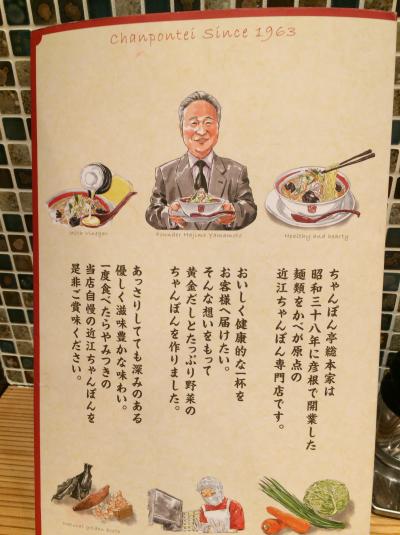 Chanpontei Since 1963
With Vinegar
Founder Hajime Yamamoto
Healthy and hearty
ちゃんぽん亭総本家は
昭和三十八年に彦根で開業した
麺類をかべが原点の
近江ちゃんぽん専門店です。
おいしく健康的な一杯を
お客様へ届けたい。
そんな想いをもって
黄金だしとたっぷり野菜の
ちゃんぽんを作りました。
あっさりしてても深みのある
優しく滋味豊かな味わい。
一度食べたらやみつきの
当店自慢の近江ちゃんぽんを
是非ご賞味ください。
Natural golden